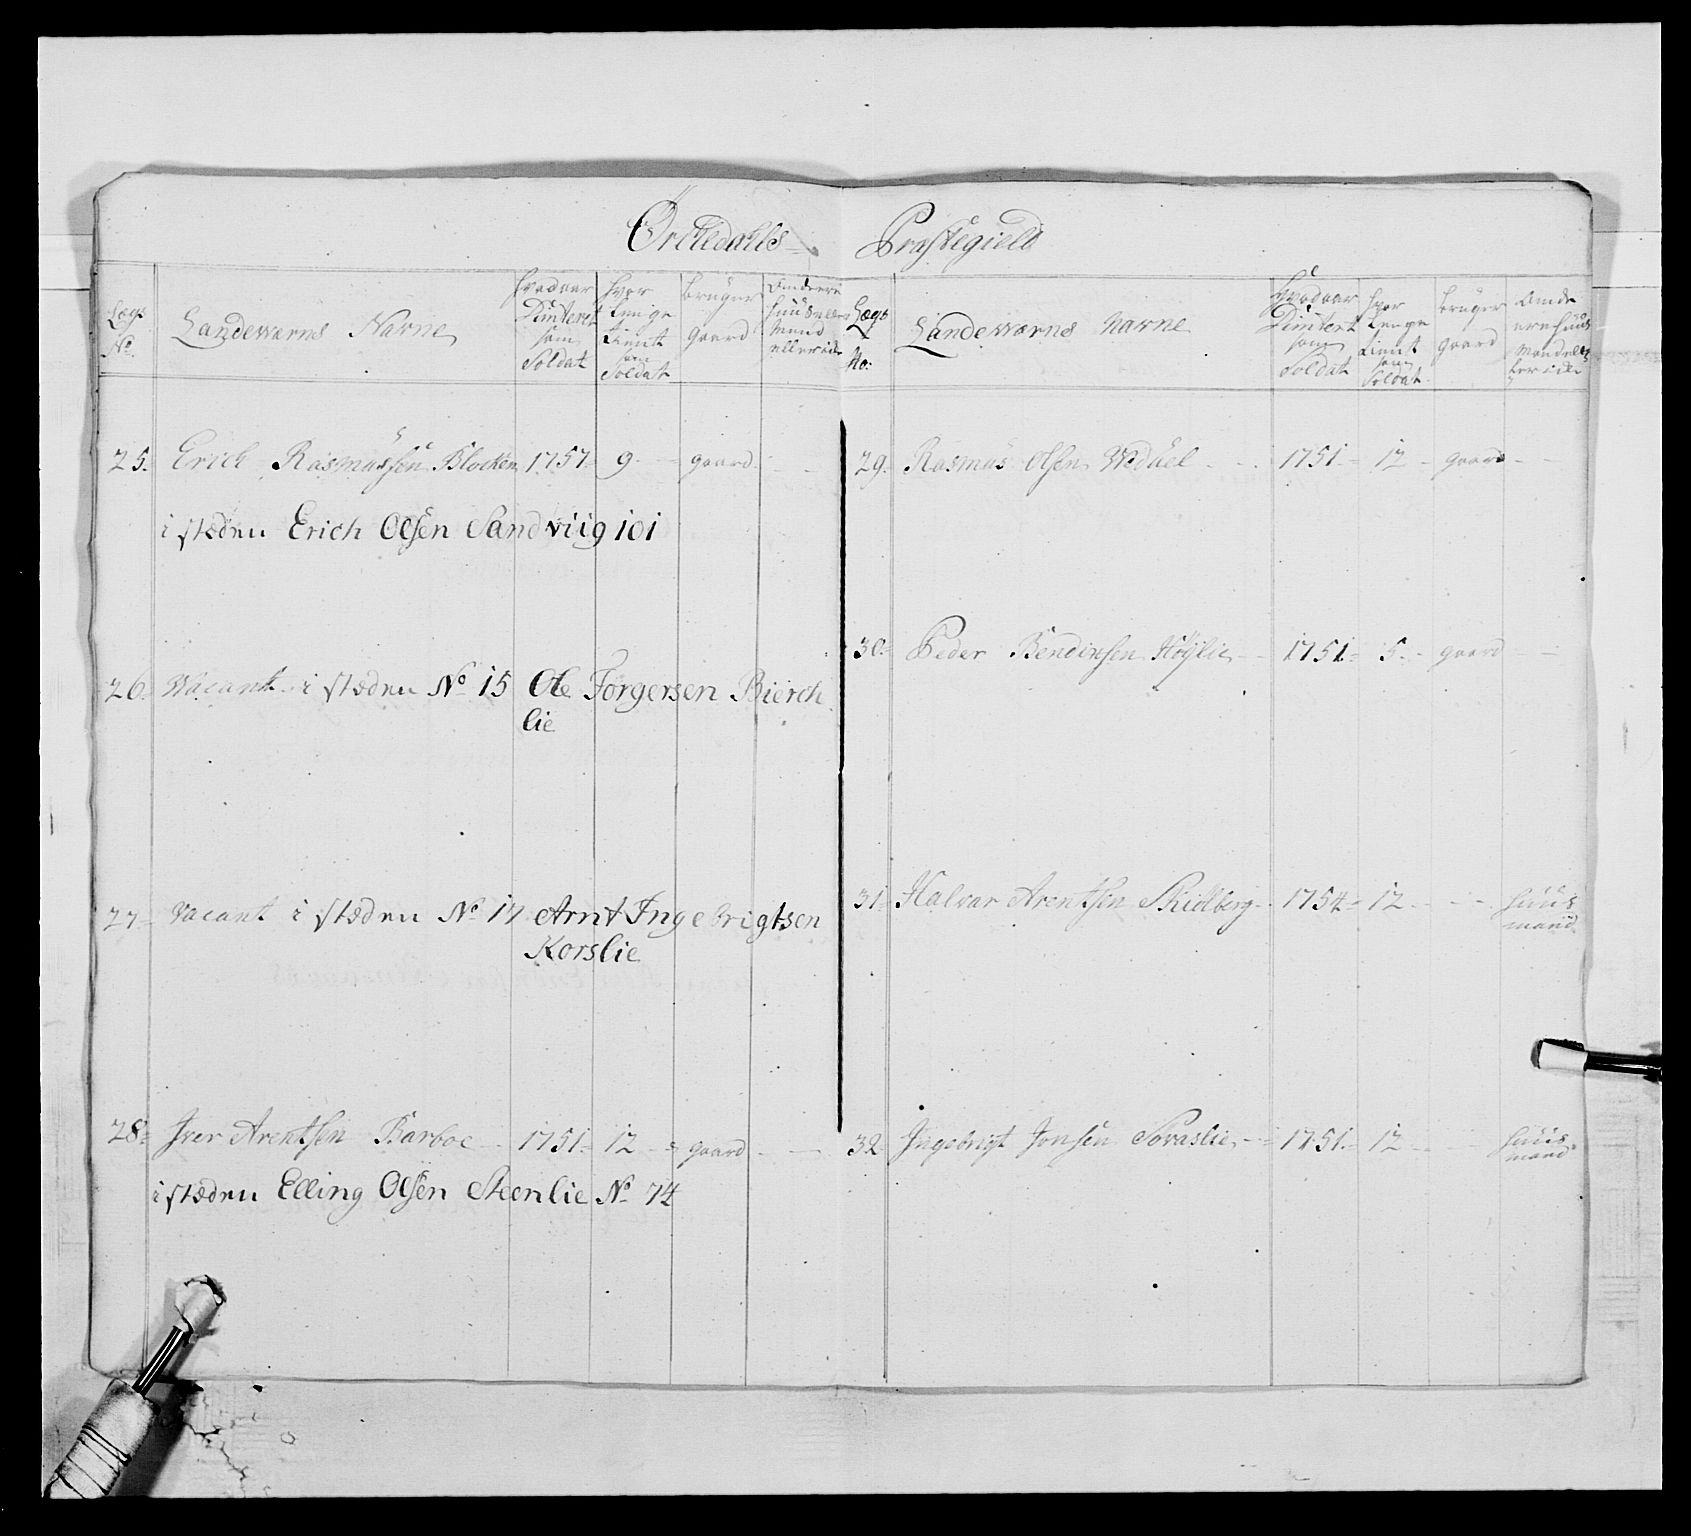 Orckedalls Præstegield
Lægs No. Landewærns Navne Hvad aar Dimiteret som Soldat Hvor Lenge tient som Soldat bruger gaard
25. Erich Rasmussen Blocken 1757 9 gaard
i stæden Erich Olsen Sandviig 101
26. Vacant i stæden No 15 Ole Jørgersen Bierch
lie
27 Vacant i stæden No 17 Arnt Ingebrigtsen
Korslie
28 Iver Arentsen Barboe 1751 12 gaard
i stæden Elling Olsen Steenlie No 74
Lægs No. Landewærns Navne Hvad aar Dimitert som Soldat Hvor Lenge tient som Soldat bruger gaard
29. Rasmus Olsen 1751 12 gaard
30 Peder Bendinsen Høÿlie 1751 5 gaard
31 Halvar Arentsen Skidlberg 1754 12 huus
mand
32 Ingebrigt Jonsen 1751 12 huus
mand